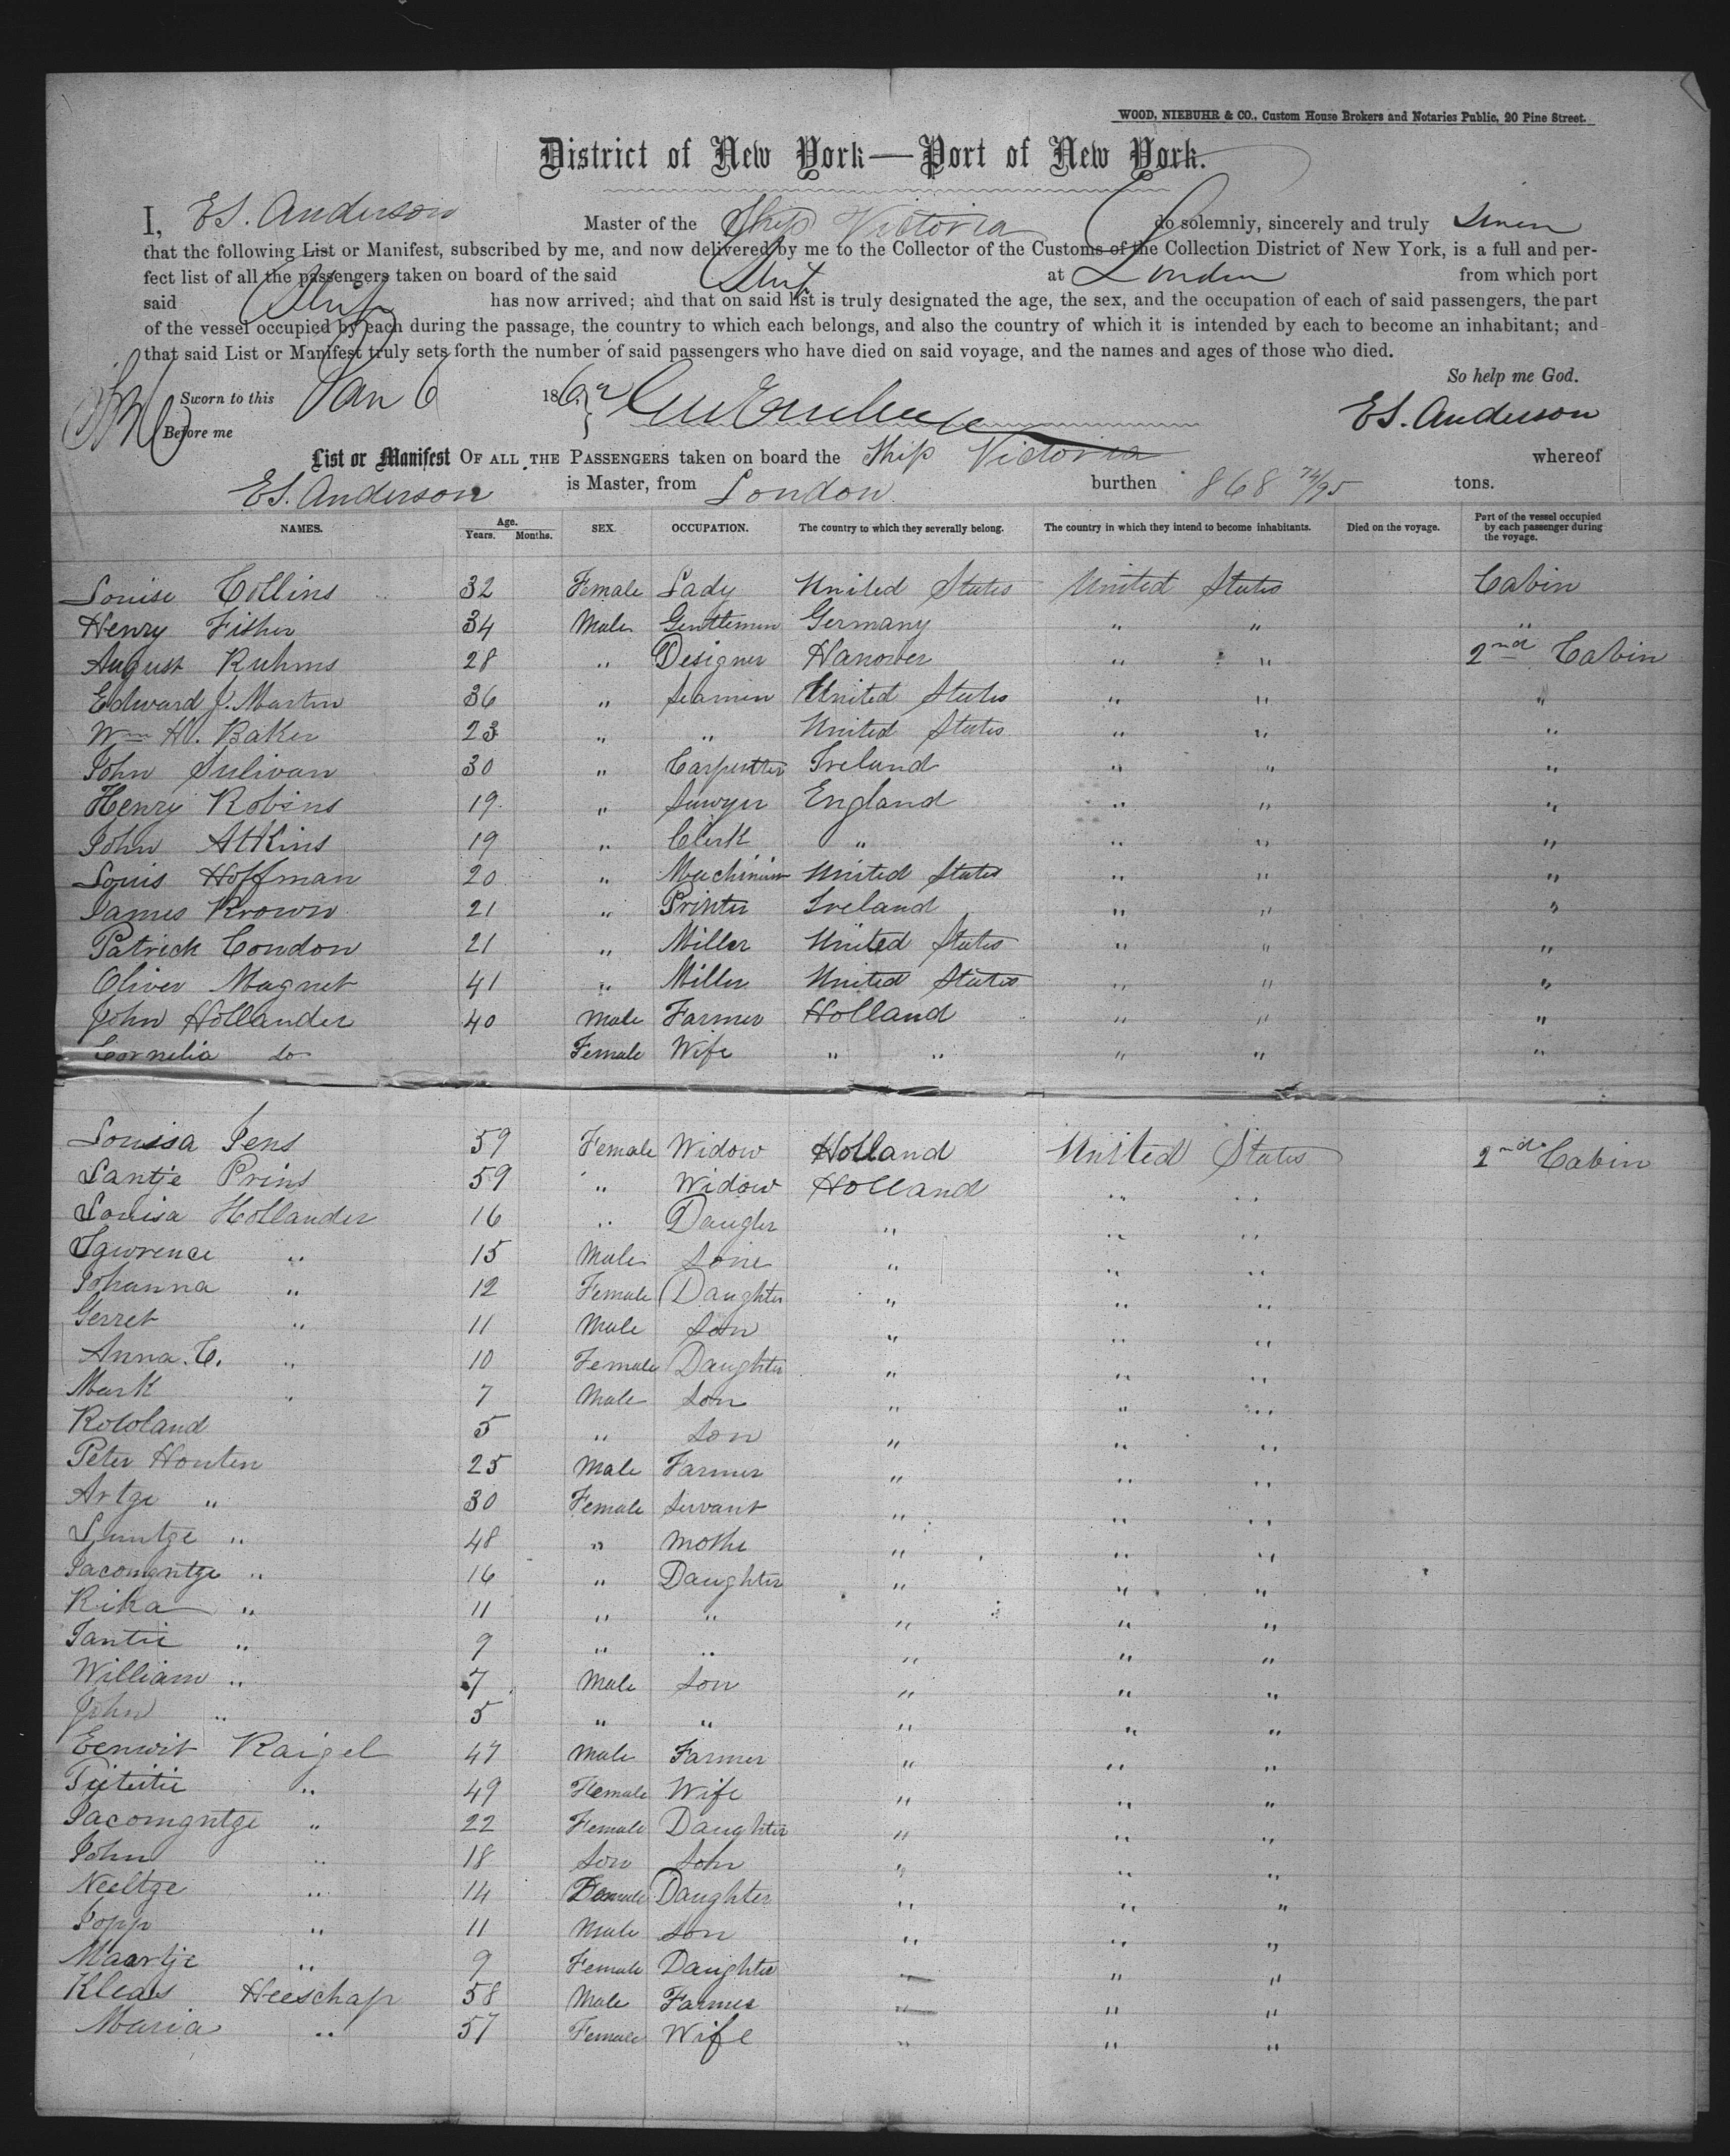 WOOD, NIEBUHR & CO., Custom House Brokers and Notaries Public, 20 Pine Street.
District of New York—Port of New York.
I, E S. Anderson Master of the Ship Victoria do solemnly, sincerely and truly swear
that the following List or Manifest, subscribed by me, and now delivered by me to the Collector of the Customs of the Collection District of New York, is a full and per-
fect list of all the passengers taken on board of the said Ship at London from which port
said Ship has now arrived; and that on said list is truly designated the age, the sex, and the occupation of each of said passengers, the part
of the vessel occupied by each during the passage, the country to which each belongs, and also the country of which it is intended by each to become an inhabitant; and
that said List or Manifest truly sets forth the number of said passengers who have died on said voyage, and the names and ages of those who died.
So help me God.
Sworn to this Jan 6 186 E S. Anderson
Before me
List or Manifest OF ALL THE PASSENGERS taken on board the Ship Victoria whereof
E S. Anderson is Master, from London burthen 868 74/95 tons.
NAMES. Age. Years. Months. SEX. OCCUPATION. The country to which they severally belong. The country in which they intend to become inhabitants. Died on the voyage. Part of the vessel occupied by each passenger during the voyage.
Louise Collins 32 Female Lady United States United States Cabin
Henry Fisher 34 Male Gentlemen Germany " " "
August Ruhms 28 " Designer Hanover " " 2nd Cabin
Edward J. Martin 36 " Seamen United States " " "
Wm H. Baker 23 " " United States " " "
John Sulivan 30 " Carpentter Ireland " " "
Henry Robins 19 " Sawyer England " " "
John Atkins 19 " Clerk " " " "
Louis Hoffman 20 " Machinist United States " " "
James Brown 21 " Printer Ireland " " "
Patrick Condon 21 " Miller United States " " "
Oliver Magnet 41 " Miller United States " " "
John Hollander 40 Male Farmer Holland " " "
Cornelia do Female Wife " " " " "
Louisa Jens 59 Female Widow Holland United States 2nd Cabin
Lantje Prins 59 " Widow Holland " "
Louisa Hollander 16 " Daugter " " "
Lawrence " 15 Male Sone " " "
Johanna " 12 Female Daughter " " "
Gerret " 11 Male Son " " "
Anna. C. " 10 Female Daughter " " "
Mark " 7 Male Son " " "
Rowland 5 " Son " " "
Peter Houten 25 Male Farmer " " "
Artge " 30 Female Servant " " "
Luntge " 48 " Mothe " " "
Jacomgntge " 16 " Daughter " " "
Rika " 11 " " " " "
Jantie " 9 " " " " "
William " 7 Male Son " " "
John " 5 " " " " "
Eenwit Raigel 47 Male Farmer " " "
Pieteitie " 49 Female Wife " " "
Jacomgntge " 22 Female Daughter " " "
John " 18 Son Son " " "
Neeltge " 14 Female Daughter " " "
Jopp " 11 Male Son " " "
Maartje " 9 Female Daughter " " "
Kleas Heeschap 58 Male Farmer " " "
Maria " 57 Female Wife " " "